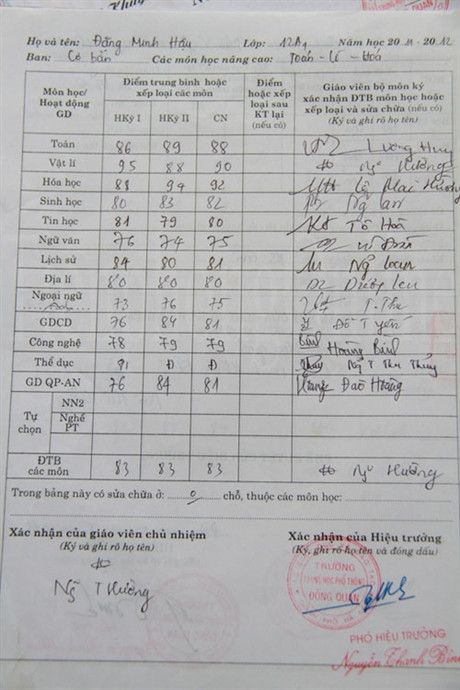 Họ và tên: Đặng Minh Hậu Lớp: 12A1 Năm học 2011 - 2012
Ban: Cơ bản Các môn học nâng cao: Toán - Lí - Hoá
Môn học/ Hoạt động GD
Điểm trung bình hoặc xếp loại các môn
HKỳ I HKỳ II CN
Điểm hoặc xếp loại sau KT lại (nếu có)
Giáo viên bộ môn ký xác nhận ĐTB môn học hoặc xếp loại và sửa chữa (nếu có)
(Ký và ghi rõ họ tên)
Toán 86 89 88 Lương Huy
Vật lí 95 88 90 Ngô Hường
Hóa học 88 94 92 Lê Mai Hương
Sinh học 80 83 82 Ng An
Tin học 81 79 80 Tô Hoà
Ngữ văn 76 74 75
Lịch sử 84 80 81 Ng Loan
Địa lí 80 80 80 Dương Len
Ngoại ngữ Anh 73 76 75 T. Thu
GDCD 76 84 81 Đỗ T Yến
Công nghệ 78 79 79 Hoàng Bính
Thể dục Đ Đ Ng T Thu Thủy
GD QP-AN 76 84 81 Đào Hoàng
Tự chọn
NN2
Nghề PT
ĐTB các môn 83 83 83 Ngô Hường
Trong bảng này có sửa chữa ở: 0 chỗ, thuộc các môn học:
Xác nhận của giáo viên chủ nhiệm
(Ký và ghi rõ họ tên)
Ng T Hường
Xác nhận của Hiệu trưởng
(Ký, ghi rõ họ tên và đóng dấu)
TRƯỜNG
TRUNG HỌC PHỔ THÔNG
ĐỒNG QUAN
PHÓ HIỆU TRƯỞNG
Nguyễn Thanh Bình